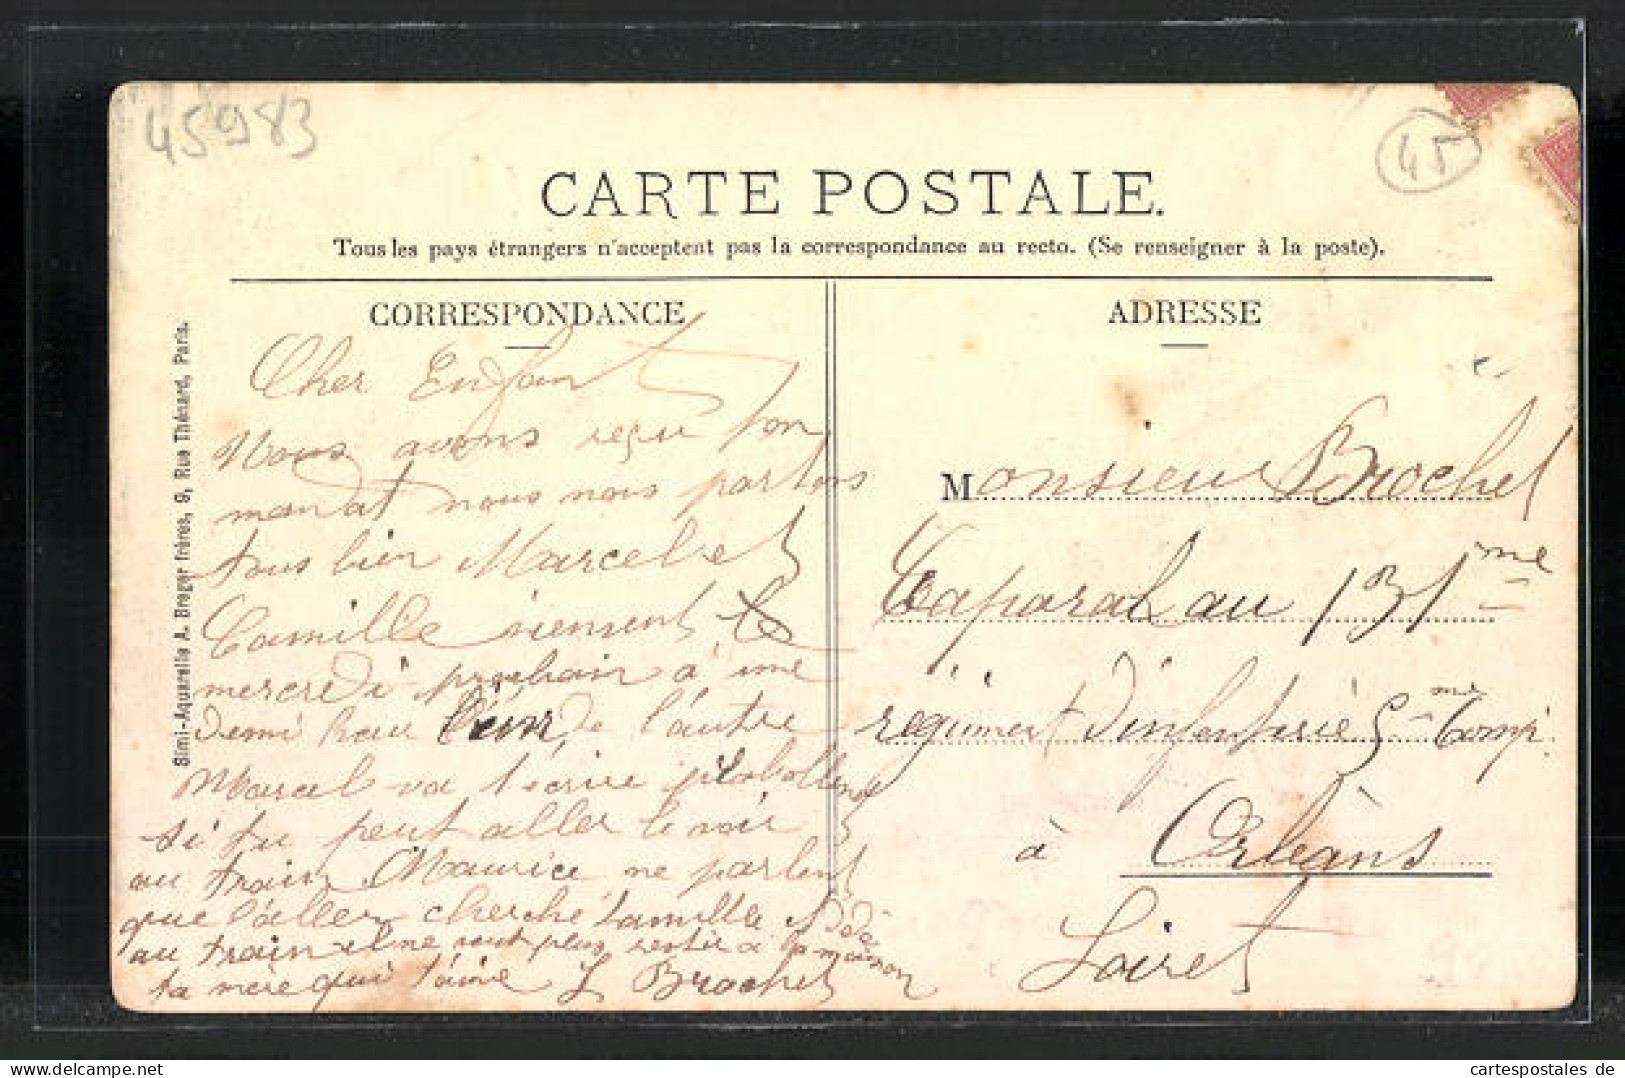 45983
45
CARTE POSTALE.
Tous les pays étrangers n'acceptent pas la correspondance au recto. (Se renseigner à la poste).
CORRESPONDANCE
Cher Enfant
Nous avons reçu ton
mandat nous nous portons
tous bien Marcel et
Camille viennent le
mercredi prochain à une
demi heur l'un de l'autre
Marcel va t'écrire
si tu peut aller le voir
au train Maurice ne parlent
que l'aller cherché Camille et dédé
au train il ne veut plus restir a la maison
ta mère qui t'aime L Brochet
ADRESSE
Monsieur Brochet
Caparal au 131me
regiment d'infanterie 5me Comp.
à Orléans
Loiret
Simi-Aquarelle A. Breger frères, 9, Rue Thénard, Paris.
www.delcampe.net
cartespostales de